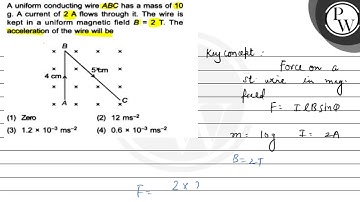 A uniform conducting wire ABC has a mass of 10
g. A current of 2 A flows through it. The wire is
kept in a uniform magnetic field B = 2 T. The
acceleration of the wire will be
B
4 cm
5 cm
A
C
(1) Zero
(2) 12 ms⁻²
(3) 1.2 × 10⁻³ ms⁻²
(4) 0.6 × 10⁻³ ms⁻²
PW
Key concept :
Force on a
st. wire in mag.
field
F = IlBsinθ
m = 10g I = 2A
B = 2T
F = 2 x 2